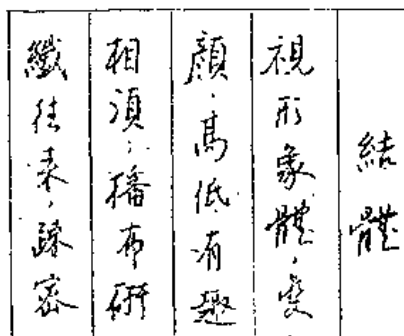 結體
視形象體，變
顏，高低有趣
相須；播布研
纖往来，疎密